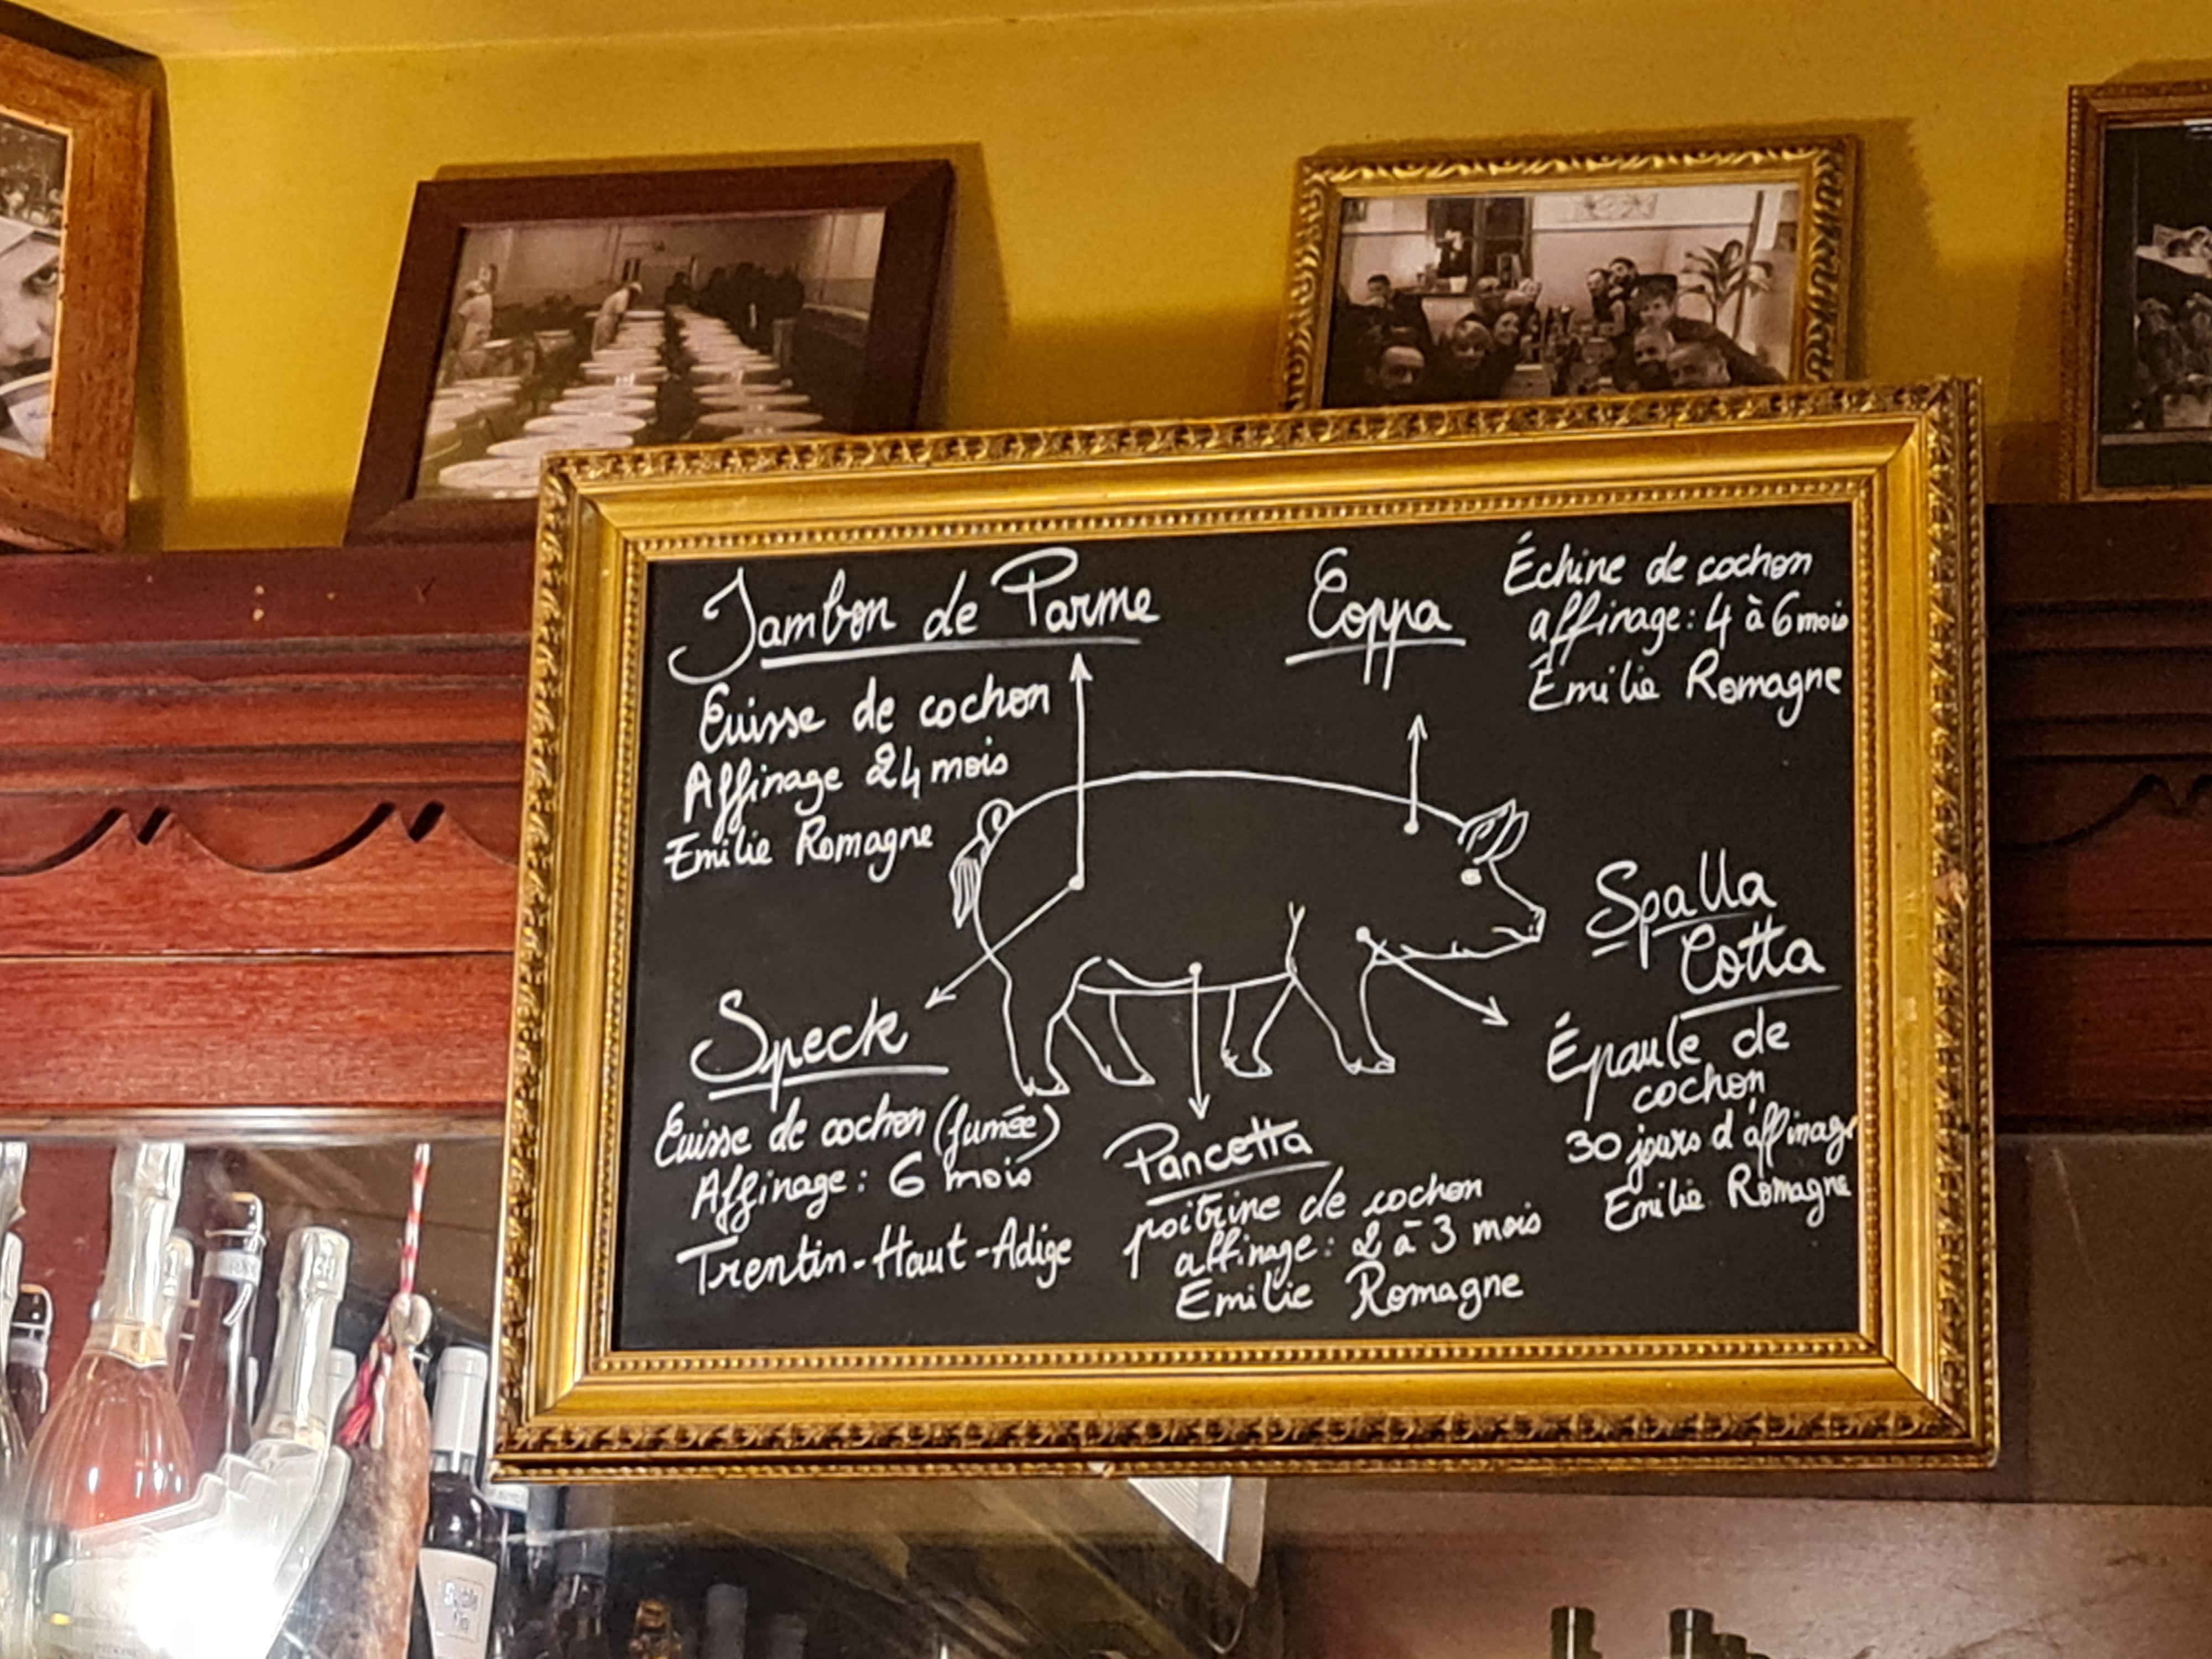 Jambon de Parme
Cuisse de cochon
Affinage 24 mois
Emilie Romagne
Coppa
Échine de cochon
affinage: 4 à 6 mois
Émilie Romagne
Spalla
Cotta
Épaule de
cochon
30 jours d'affinage
Emilie Romagne
Speck
Cuisse de cochon (fumée)
Affinage: 6 mois
Trentin-Haut-Adige
Pancetta
poitrine de cochon
affinage: 2 à 3 mois
Emilie Romagne